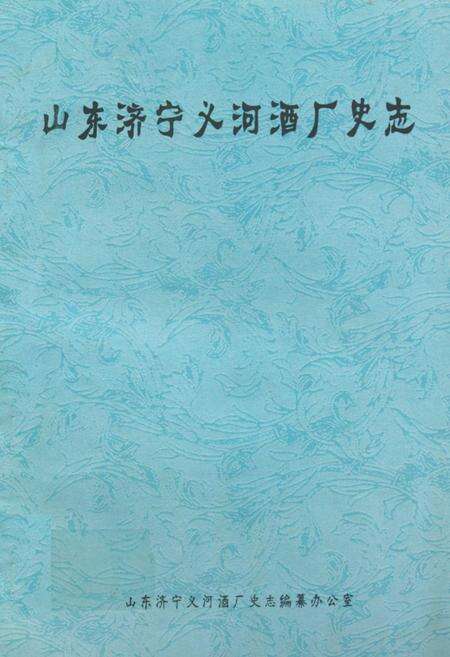 山东济宁义河酒厂史志
山东济宁义河酒厂史志编纂办公室